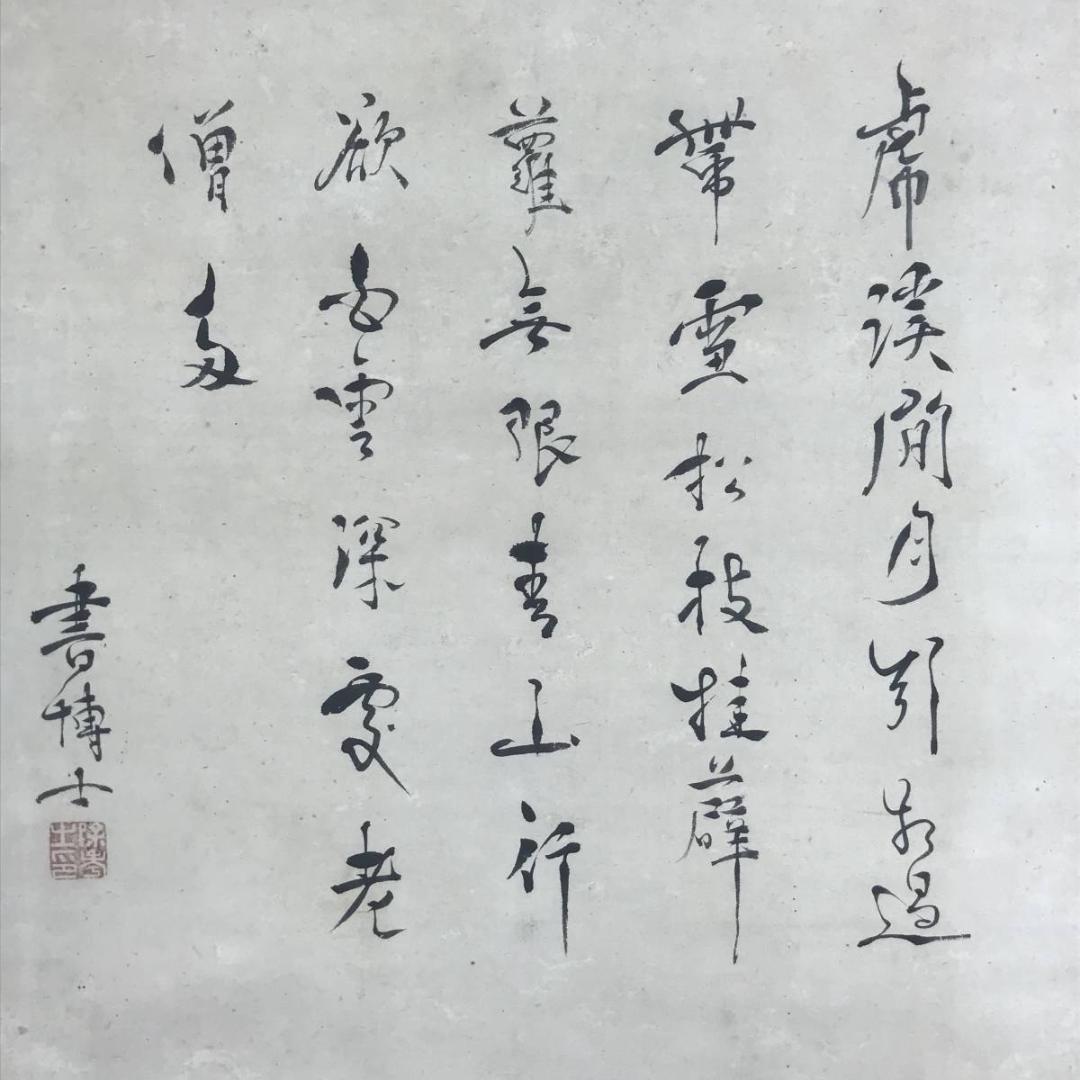 虎溪閒月引相過
帶雪松枝挂薜
蘿無限青山行
欲白雲深處老
僧多
書博士